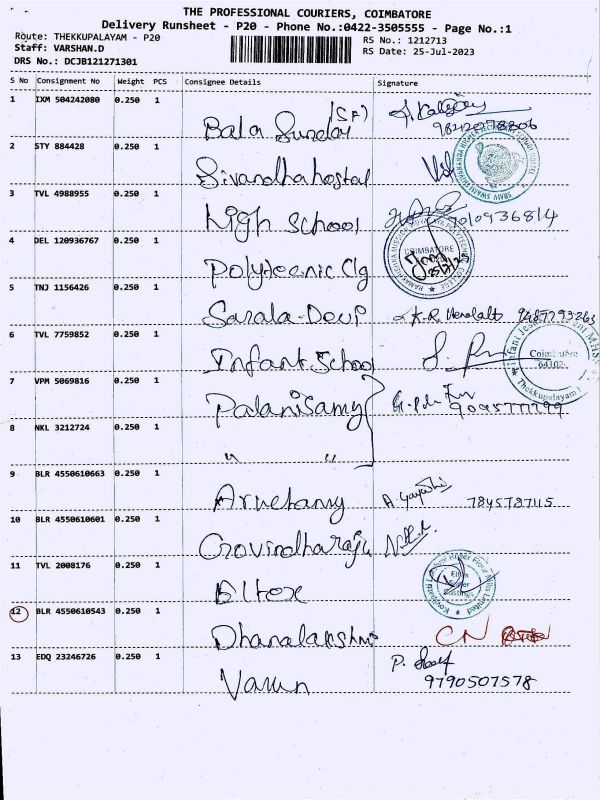 THE PROFESSIONAL COURIERS, COIMBATORE
Delivery Runsheet - P20 - Phone No.:0422-3505555 - Page No.:1
Route: THEKKUPALAYAM - P20
RS No.: 1212713
Staff: VARSHAN.D
RS Date: 25-Jul-2023
DRS No.: DCJB121271301
S No Consignment No Weight PCS Consignee Details Signature
1 IXM 504242080 0.250 1
Bala Sundar (SF)
2 STY 884428 0.250 1
Sivandha hostal
3 TVL 4988955 0.250 1
high school 9010936814
4 DEL 120936767 0.250 1
Polyteenic Clg
COIMBATORE
5 TNJ 1156426 0.250 1
Sarala-Devi 9487793263
6 TVL 7759852 0.250 1
Infant School
Coimbatore
Thekkupalayam
7 VPM 5069816 0.250 1
Palanisamy 9095777799
8 NKL 3212724 0.250 1
" "
9 BLR 4550610663 0.250 1
A. Gayathri 784578745
10 BLR 4550610601 0.250 1
Govindharaju
11 TVL 2008176 0.250 1
Eltex
12 BLR 4550610543 0.250 1
Dhanalakshmi CN
13 EDQ 23246726 0.250 1
Varun
9790507578